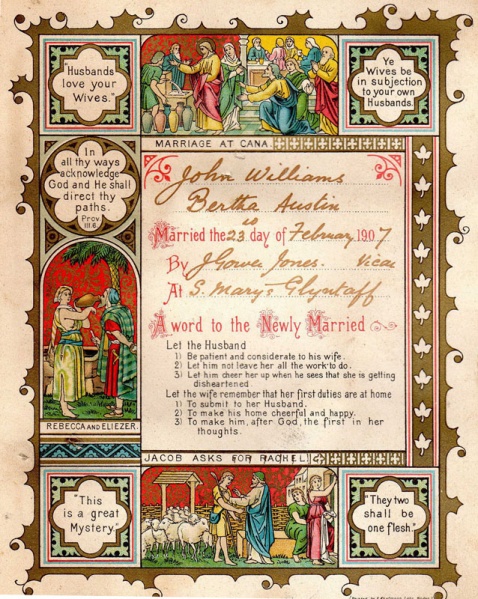 "Husbands
love your
Wives."
Ye
Wives be
in subjection
to your own
Husbands.
MARRIAGE AT CANA.
In
all thy ways
acknowledge
God and He shall
direct thy
paths.
Prov.
III.6.
John Williams
Bertha Austin
Married the 23 day of February 1907
By J Gower Jones. Vicar
At S. Mary's Glyntaff
A word to the Newly Married
Let the Husband
1) Be patient and considerate to his wife.
2) Let him not leave her all the work to do.
3) Let him cheer her up when he sees that she is getting
disheartened.
Let the wife remember that her first duties are at home
1) To submit to her Husband.
2) To make his home cheerful and happy.
3) To make him, after God, the first in her
thoughts.
REBECCA AND ELIEZER.
JACOB ASKS FOR RACHEL.
"This
is a great
Mystery."
"They two
shall be
one flesh."